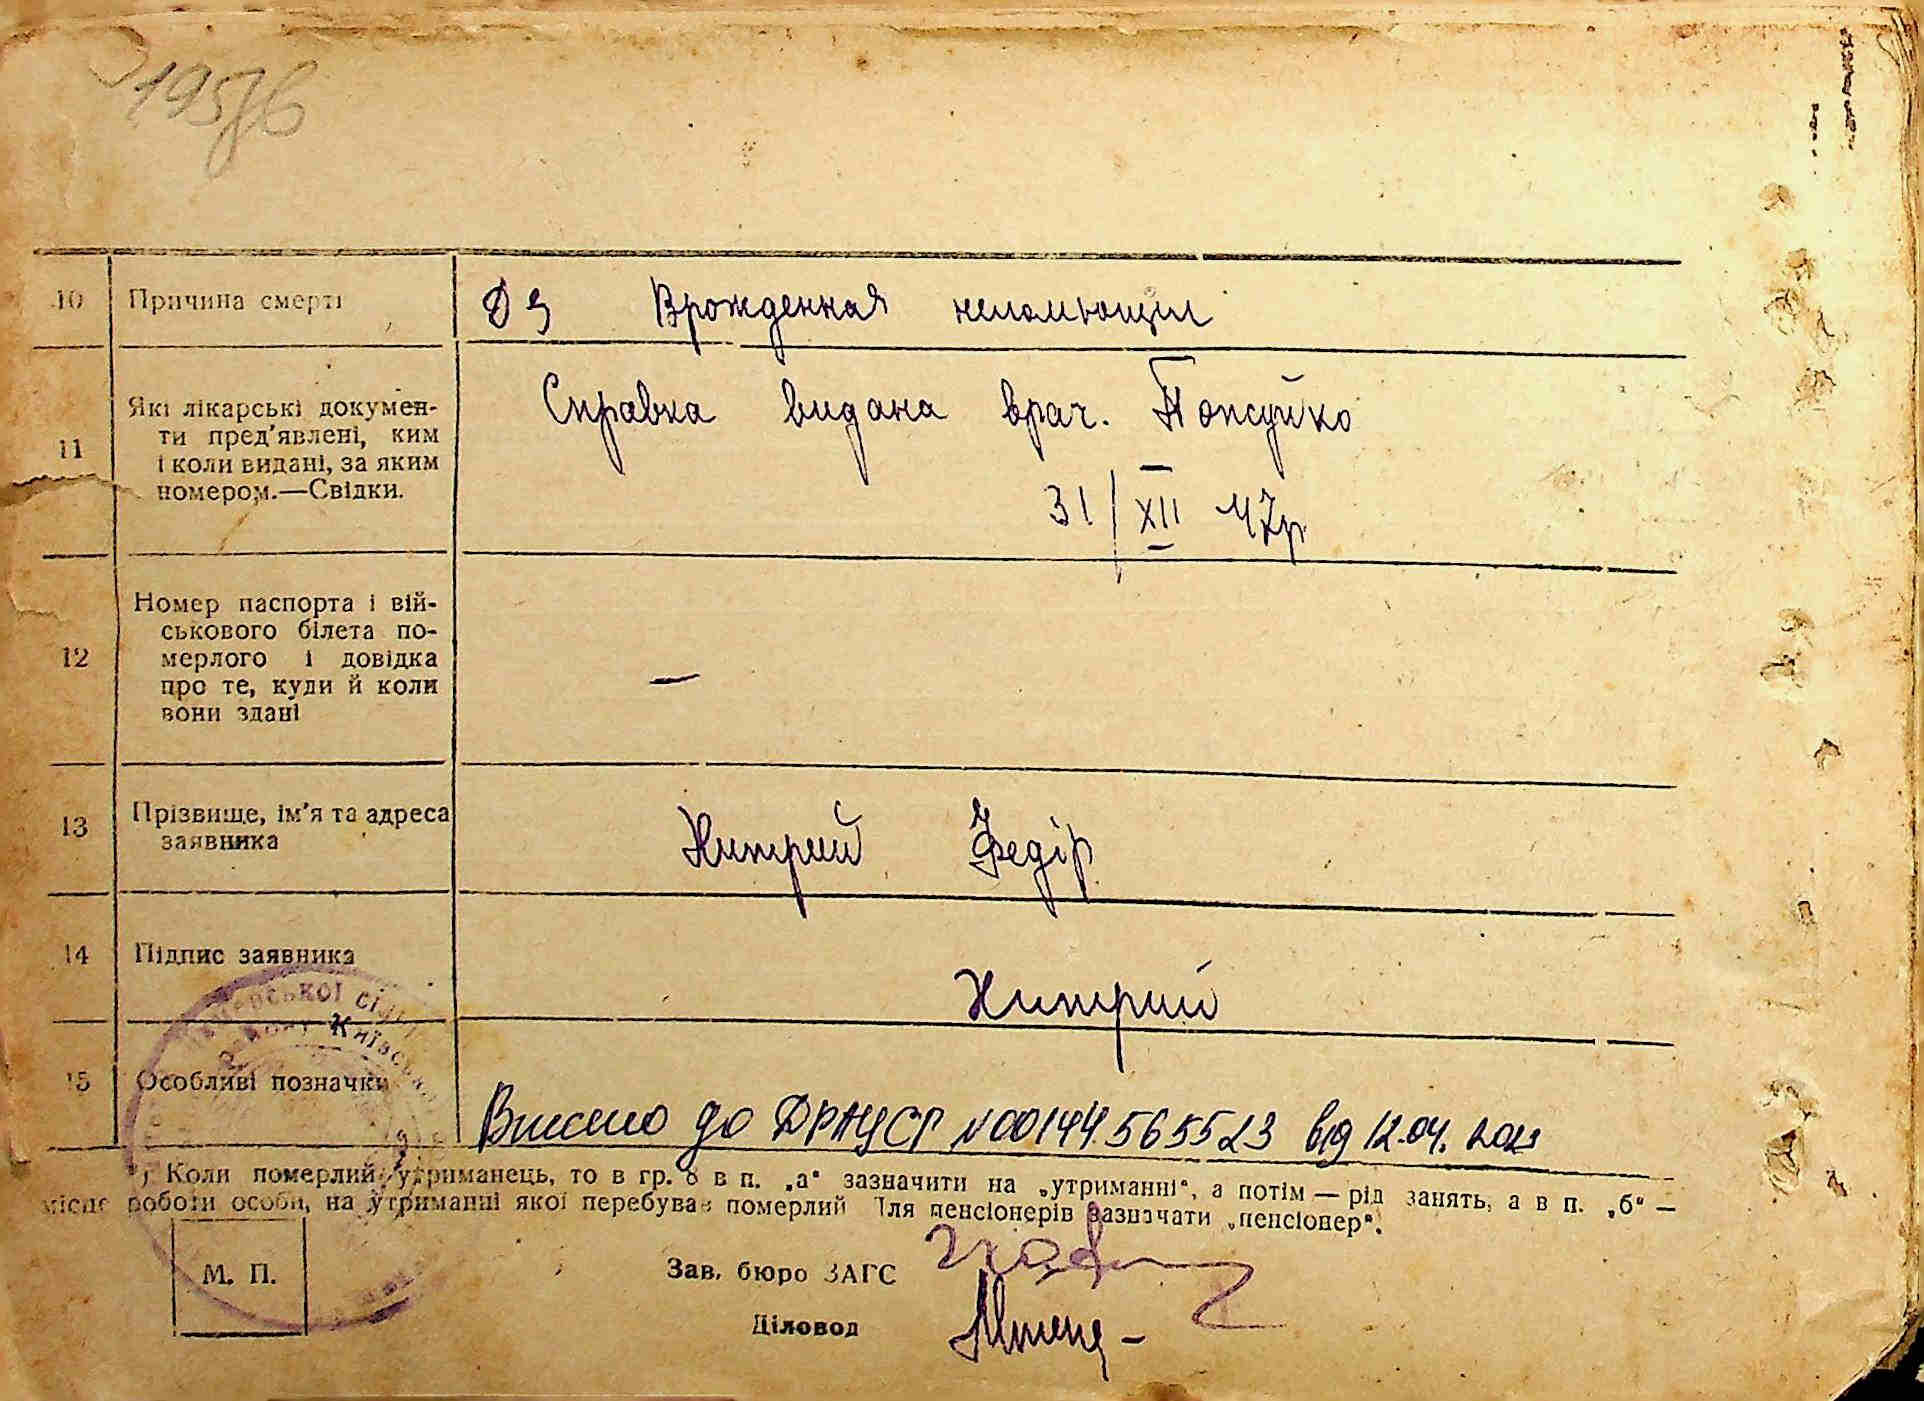 10 Причина смерти Дз Врожденная
11 Які лікарські докумен-
ти пред'явлені, ким
і коли видані, за яким
номером.—Свідки.
Справка видана врач. Попсуйко
31/XII 47р
12 Номер паспорта і вій-
ськового білета по-
мерлого і довідка
про те, куди й коли
вони здані
—
13 Прізвище, ім'я та адреса
заявника
Хитрий Федір
14 Підпис заявника
Хитрий
15 Особливі позначки
Внесено до ДРАЦСГ №00144565523 від 12.04.2022
*) Коли померлий утриманець, то в гр. 8 в п. „а“ зазначити на „утриманні“, а потім — рід занять, а в п. „б“ —
місце роботи особи, на утриманні якої перебував померлий Для пенсіонерів зазначати „пенсіонер“.
М. П.
Зав. бюро ЗАГС
Діловод